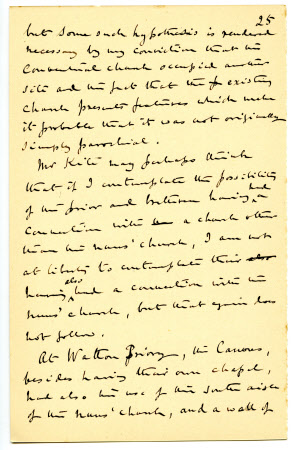 25
but some such hypothesis is rendered
necessary by my conviction that the
Conventual church occupied another
site and the fact that the existing
Church presents features which make
it probable that it was not originally
simply parochial.
Mr Kite may perhaps think
that if I contemplate the possibility
of the prior and brethren having had
Connection with a church other
than the nuns' church, I am not
at liberty to contemplate their also
having also had a connection with the
nuns' church, but that again does
not follow.
At Watton Priory, the Canons,
besides having their own chapel,
had also the use of the south aisle
of the nuns' church, and a wall of